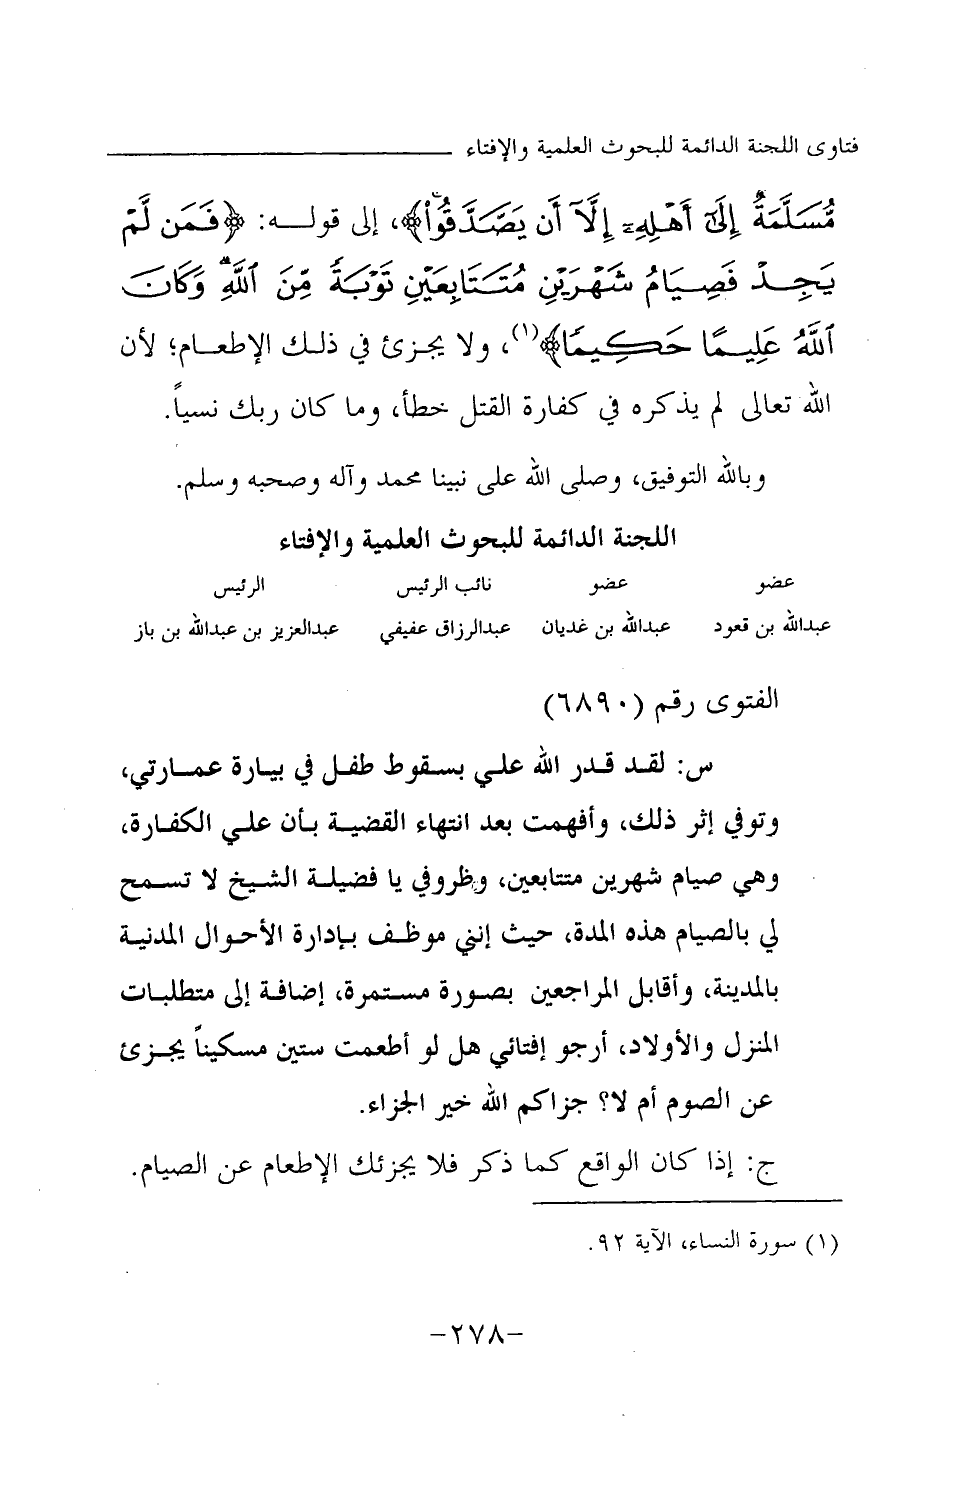 فتاوى اللجنة الدائمة للبحوث العلمية والإفتاء
مُّسَلَّمَةٌ إِلَىٰٓ أَهْلِهِۦٓ إِلَّآ أَن يَصَّدَّقُوا۟﴾، إلى قولـه: ﴿فَمَن لَّمْ
يَجِدْ فَصِيَامُ شَهْرَيْنِ مُتَتَابِعَيْنِ تَوْبَةً مِّنَ ٱللَّهِ وَكَانَ
ٱللَّهُ عَلِيمًا حَكِيمًا﴾(١)، ولا يجزئ في ذلك الإطعـام؛ لأن
الله تعالى لم يذكره في كفارة القتل خطأ، وما كان ربك نسياً.
وبالله التوفيق، وصلى الله على نبينا محمد وآله وصحبه وسلم.
اللجنة الدائمة للبحوث العلمية والإفتاء
عضو عضو نائب الرئيس الرئيس
عبدالله بن قعود عبدالله بن غديان عبدالرزاق عفيفي عبدالعزيز بن عبدالله بن باز
الفتوى رقم (٦٨٩٠)
س: لقد قدر الله علي بسقوط طفل في بيارة عمـارتي،
وتوفي إثر ذلك، وأفهمت بعد انتهاء القضية بـأن علي الكفـارة،
وهي صيام شهرين متتابعين، وظروفي يا فضيلـة الشيخ لا تسمـح
لي بالصيام هذه المدة، حيث إنني موظـف بـإدارة الأحـوال المدنيـة
بالمدينة، وأقابل المراجعين بصورة مستمرة، إضافـة إلى متطلبـات
المنزل والأولاد، أرجو إفتائي هل لو أطعمت ستين مسكيناً يجـزئ
عن الصوم أم لا؟ جزاكم الله خير الجزاء.
ج: إذا كان الواقع كما ذكر فلا يجزئك الإطعام عن الصيام.
(١) سورة النساء، الآية ٩٢.
-٢٧٨-